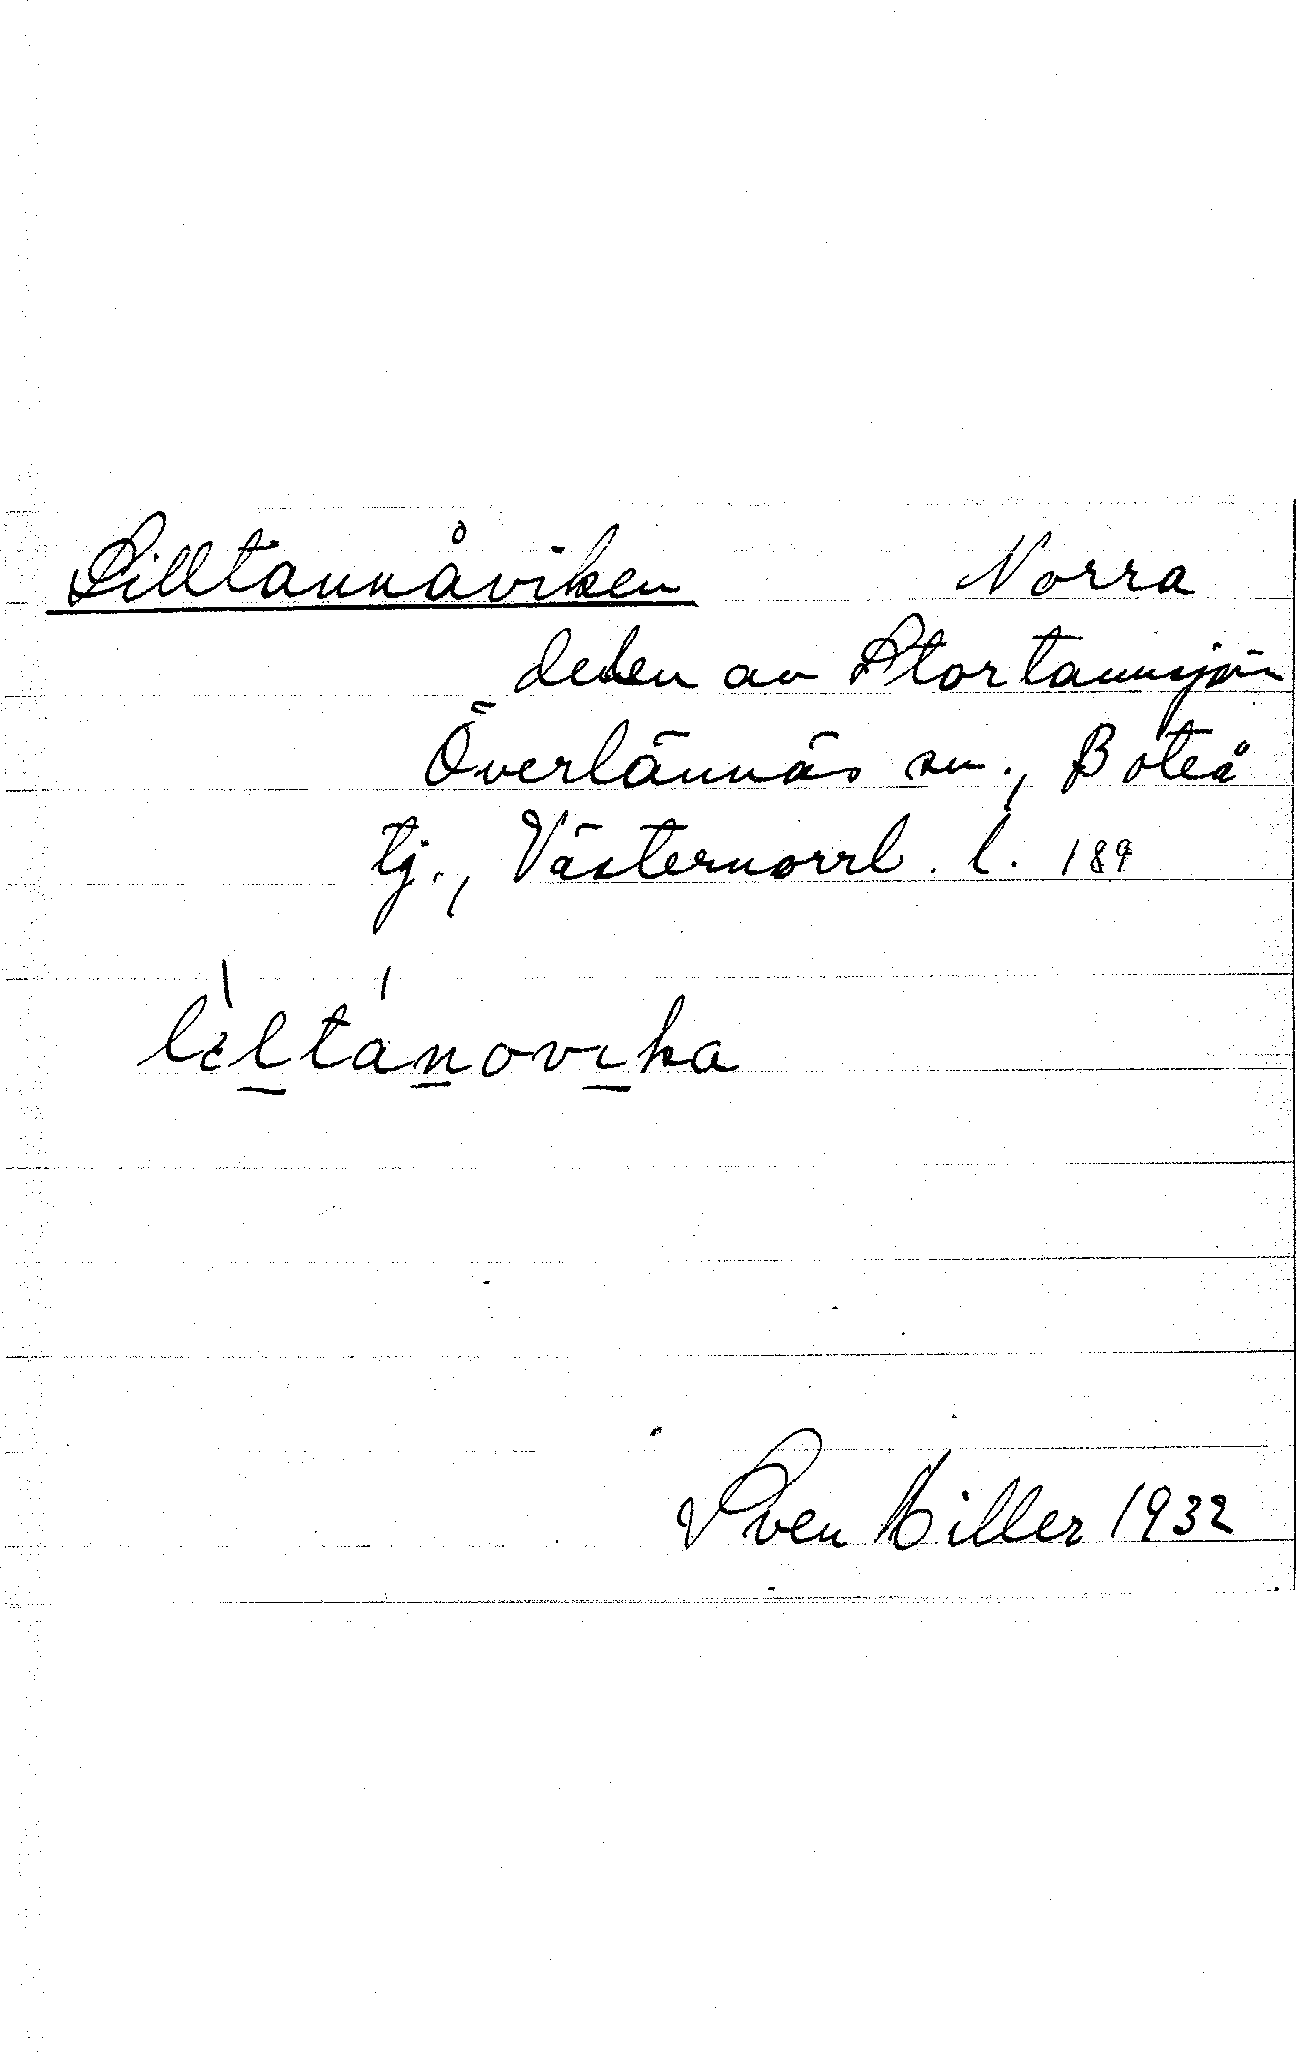 Lilltannåviken Norra
delen av Stortannsjön
Överlännäs sn., Boteå
tg., Västernorrl. l. 189
lèltánovika
Sven Hiller 1932